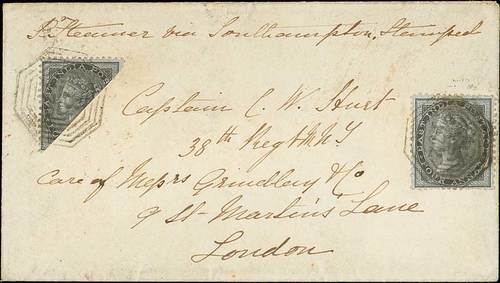 Pr Steamer via Southampton, Stamped
EAST INDIA POS
Captain C. W. Hurt
38th Regt N.I.
Care of Messrs Grindley & Co
9 St Martins Lane
London
EAST INDIA POSTAGE
FOUR ANNAS